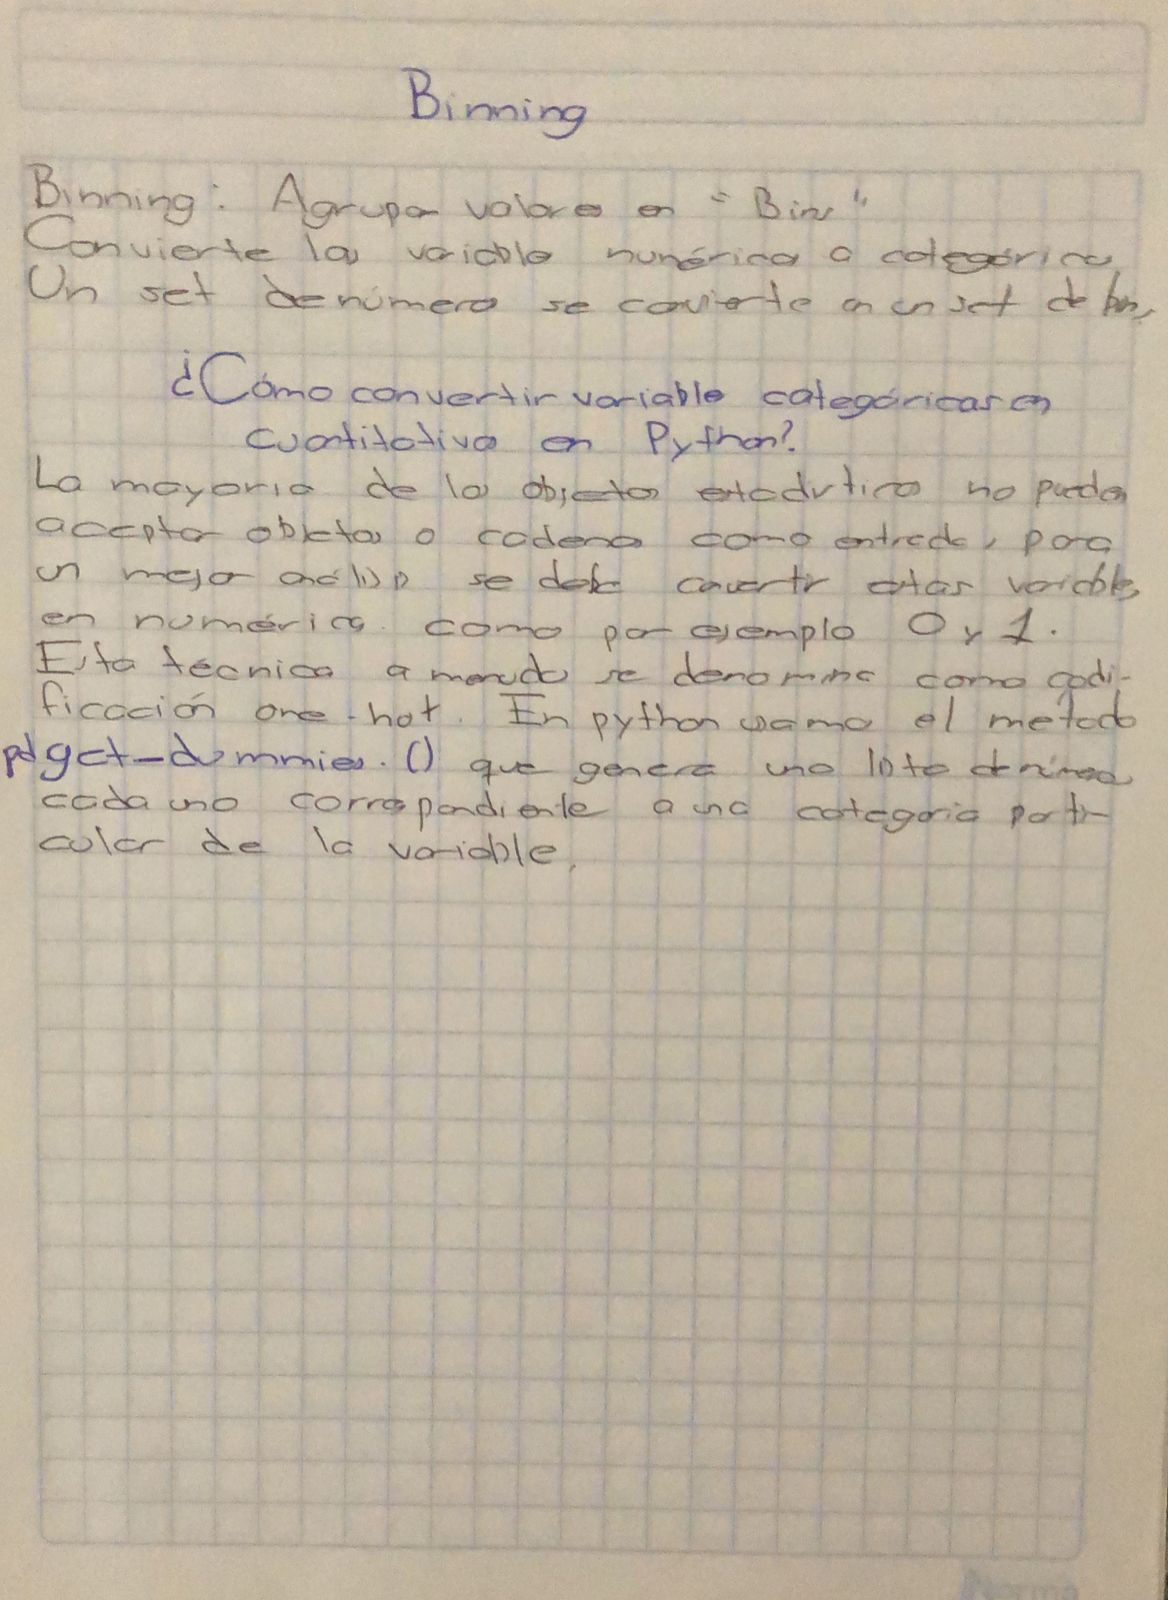 Binning
Binning: Agrupar valores en "Bins"
Convierte las variables numéricas a categóricas
Un set de números se convierte en un set de bins
¿Cómo convertir variables categóricas en
cuantitativas en Python?
La mayoria de los objetos estadisticos no pueden
aceptar objetos o cadenas como entrada, para
un mejor análisis se debe convertir estas variables
en numéricas como por ejemplo 0 y 1.
Esta técnica a menudo se denomina como codi-
ficación one-hot. En python usamos el metodo
pd get_dummies.() que genera una lista de números
cada uno correspondiente a una categoria parti-
cular de la variable.
Norma